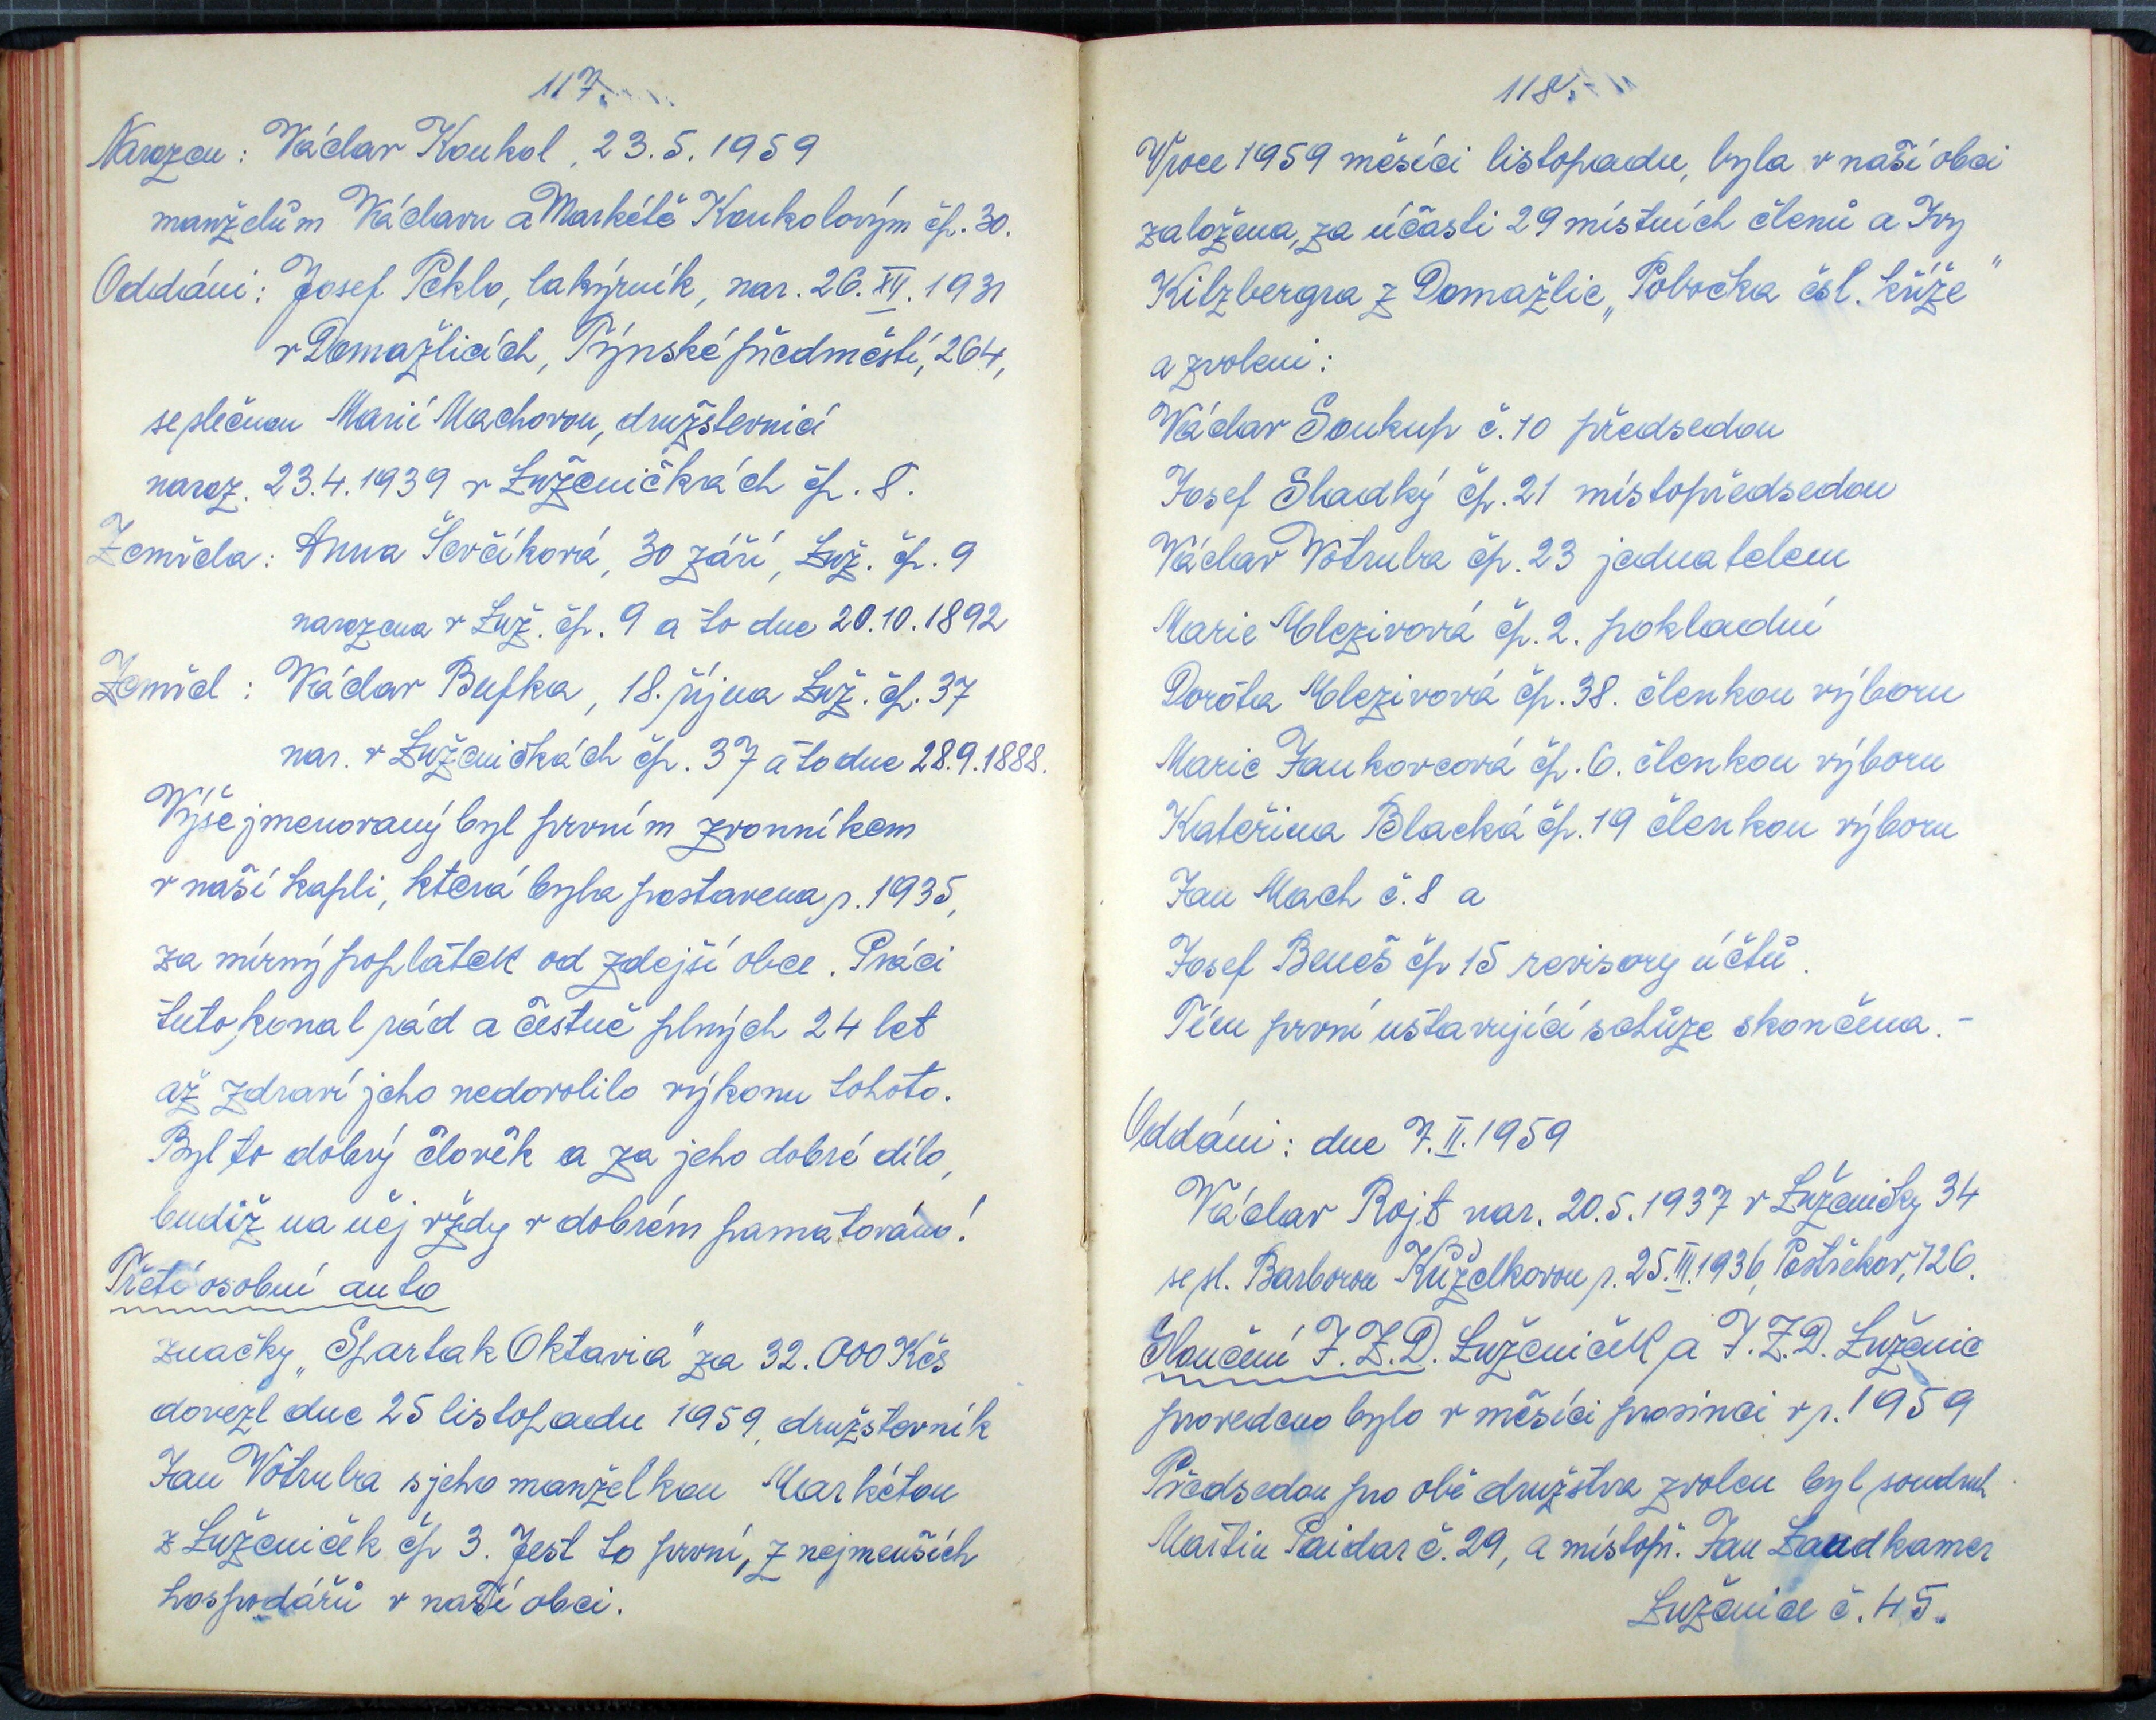 117.
Narozen: Václav Koukol, 23.5.1959
manželům Václavu a Markétě Koukolovým čp. 30.
Oddáni: Josef Peklo, lakýrník, nar. 26.XII.1931
v Domažlicích, Týnské předměstí, 264,
se slečnou Marií Machovou, družstevnicí
naroz. 23.4.1939 v Luženičkách čp. 8.
Zemřela: Anna Ševčíková, 30 září, Luž. čp. 9
narozena v Luž. čp. 9 a to dne 20.10.1892
Zemřel: Václav Bufka, 18. října Luž. čp. 37
nar. v Luženičkách čp. 37 a to dne 28.9.1888.
Výše jmenovaný byl prvním zvonníkem
v naší kapli, která byla postavena r. 1935,
za mírný poplatek od zdejší obce. Práci
tuto konal rád a čestně plných 24 let
až zdraví jeho nedovolilo výkonu tohoto.
Byl to dobrý člověk a za jeho dobré dílo,
budiž na něj vždy v dobrém pamatováno!
Třetí osobní auto
značky „Spartak Oktavia" za 32.000 Kčs
dovezl dne 25 listopadu 1959, družstevník
Jan Votruba s jeho manželkou Markétou
z Luženiček čp 3. Jest to první, z nejmenších
hospodářů v naší obci.
118.
V roce 1959 měsíci listopadu, byla v naší obci
založena, za účasti 29 místních členů a Ivy
Kitzbergra z Domažlic „Pobočka čsl. kříže"
a zvoleni:
Václav Soukup č. 10 předsedou
Josef Sladký čp. 21 místopředsedou
Václav Votruba čp. 23 jednatelem
Marie Mlezivová čp. 2. pokladní
Dorota Mlezivová čp. 38. členkou výboru
Marie Jankovcová čp. 6. členkou výboru
Kateřina Blacká čp. 19 členkou výboru
Jan Mach č. 8 a
Josef Beneš čp 15 revisory účtů.
Tím první ustavující schůze skončena. -
Oddáni: dne 7.II.1959
Václav Rojt nar. 20.5.1937 v Luženičky 34
se sl. Barborou Kuželkovou r. 25.III.1936, Postřekov, 126.
Sloučení J.Z.D. Luženiček a J.Z.D. Luženic
provedeno bylo v měsíci prosinci v r. 1959
Předsedou pro obě družstva zvolen byl soudruh
Martin Paidar č. 29, a místopř. Jan Landkamer
Luženice č. 45.